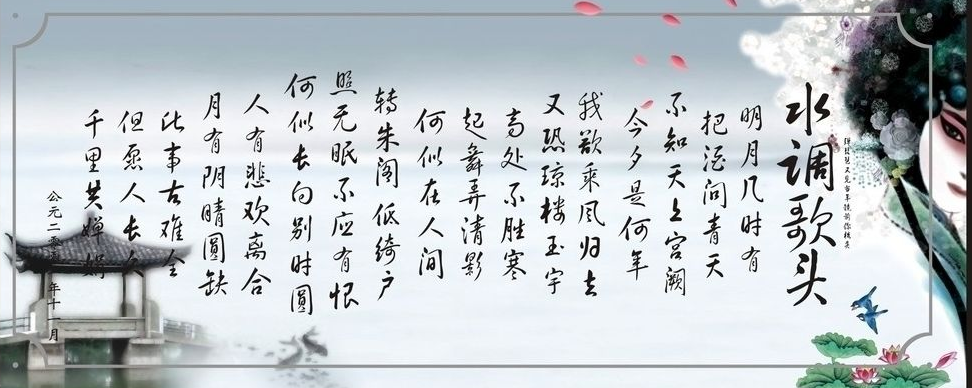 水调歌头
明月几时有
把酒问青天
不知天上宫阙
今夕是何年
我欲乘风归去
又恐琼楼玉宇
高处不胜寒
起舞弄清影
何似在人间
转朱阁低绮户
照无眠不应有恨
何似长向别时圆
人有悲欢离合
月有阴晴圆缺
此事古难全
但愿人长久
千里共婵娟
公元二零 年十一月